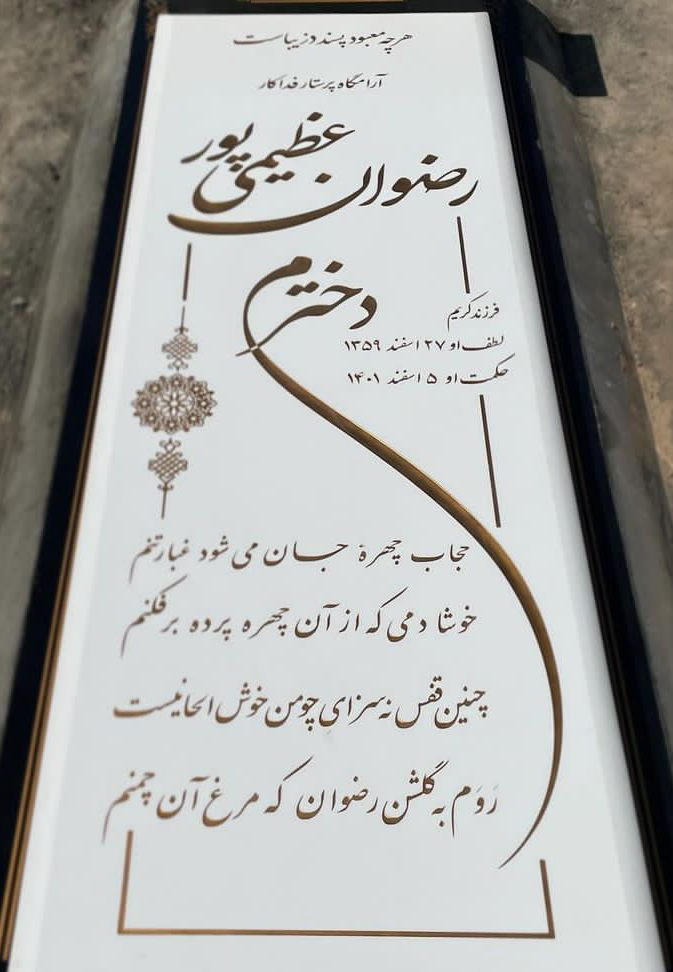 هرچه معبود پسندد زیباست
آرامگاه پرستار فداکار
رضوان عظیمی پور
دخترم
فرزند کریم
لطف او ۲۷ اسفند ۱۳۵۹
حکمت او ۵ اسفند ۱۴۰۱
حجاب چهرهٔ جان می شود غبار تنم
خوشا دمی که از آن چهره پرده برفکنم
چنین قفس نه سزای چو من خوش الحانیست
رَوَم به گلشن رضوان که مرغ آن چمنم